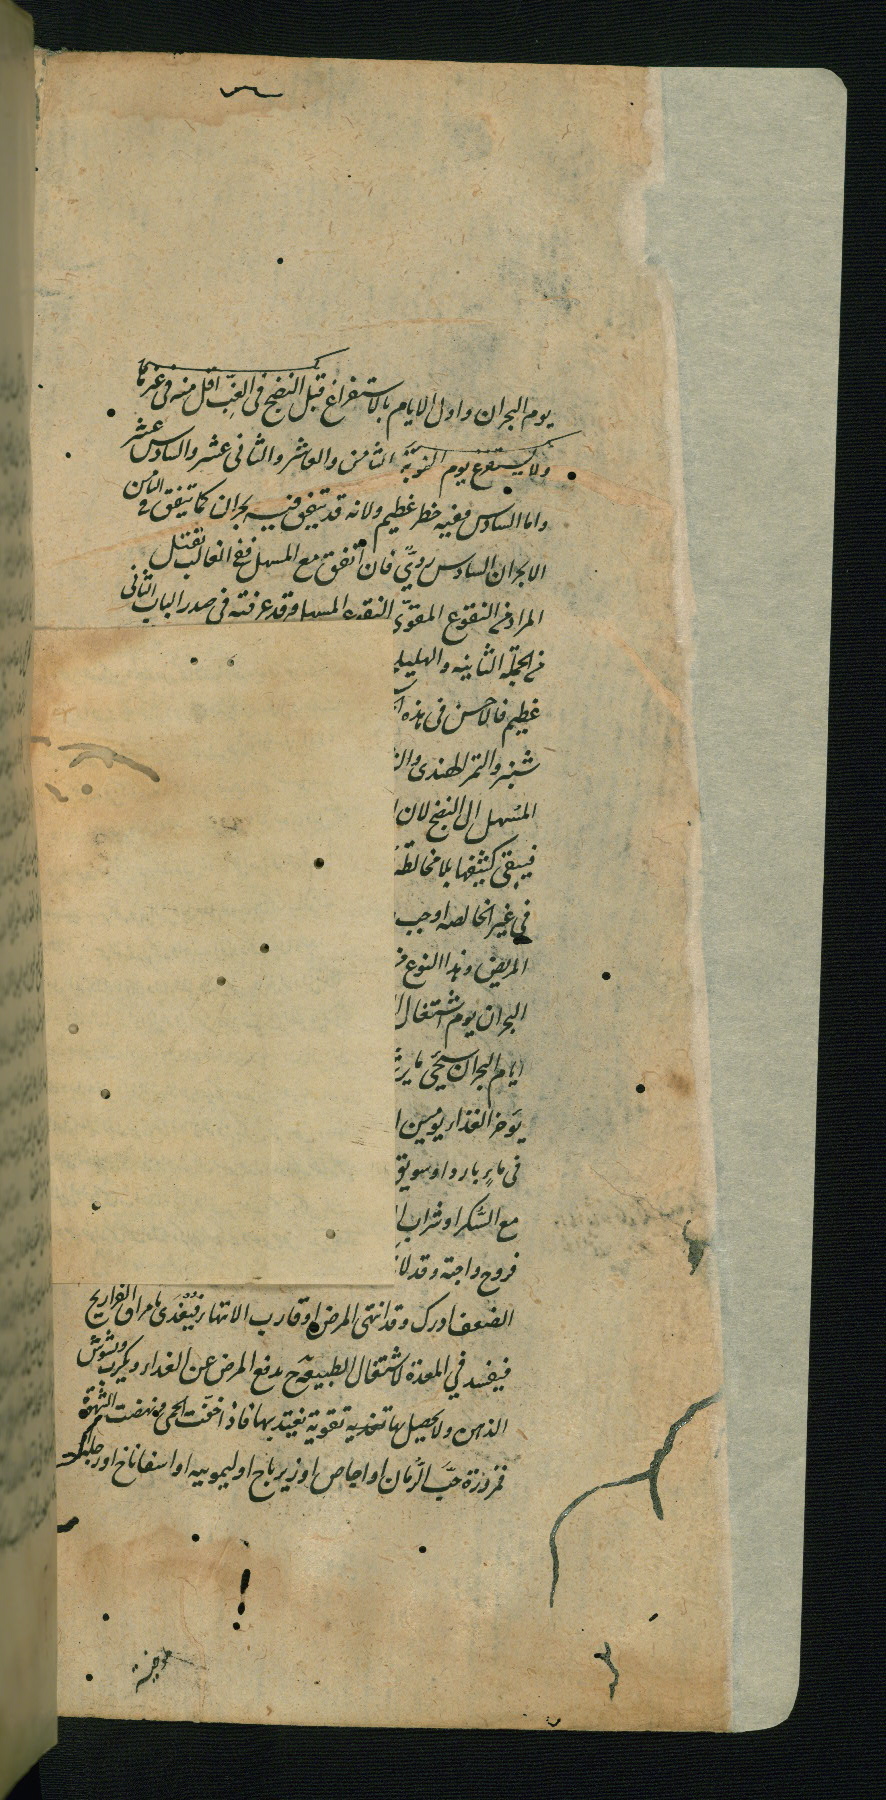 يوم البحران واول الايام بالاستفراغ قبل النضج فى الغب اقل منه فى غيرها
ولا يستفرغ يوم النوبة الثامن والعاشر والثانى عشر والسادس عشر
واما السادس ففيه خطر عظيم ولانه قد يتفق فيه بحران كما يتفق فى الثامن
الا بحران السادس روىّ فان اتفق مع المسهل ففى الغالب تقتل
المراد من النقوع المقوّى النقوع المسهل وقد عرفته فى صدر الباب الثانى
من الجملة الثانيه والهليلج
عظيم فالاحسن فى هذه
شنبر والتمر الهندى
المسهل الى النضج لان
فيبقى كثيفها بلا مخالطة
فى غير الخالصه اوجب
المريض وهذا النوع
البحران يوم اشتغال
ايام البحران
يوخر الغذاء يومين
فى ماء بارد او سويق
مع السكر او شراب
فروح واجبة وقد
الضعف اورك وقد انتهى المرض او قارب الانتهاء فيغذى بامراق الفراريج
فيفسد في المعدة لاشتغال الطبيعة ح بدفع المرض عن الغداء ويكرب ويشوش
الذهن ولا يحصل بها تغذيه تقوية يعتد بها فاذا خفّت الحمى ونهضت الشهوة
فمزورة حبّ الرّمان او اجاص او زيرباج او ليمونيه او اسفاناخ او